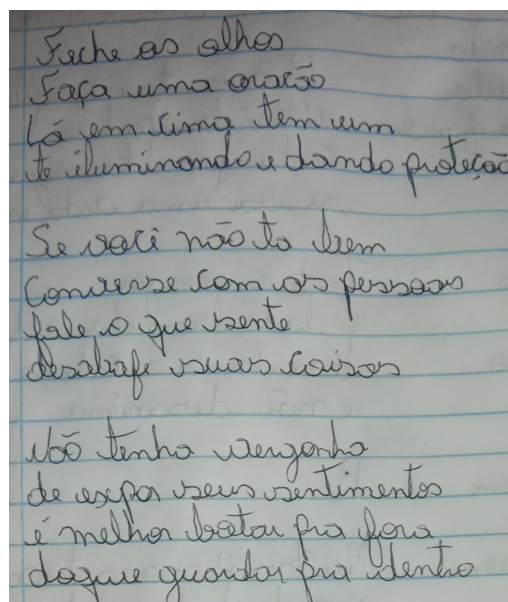 Feche os olhos
Faça uma oração
Lá em cima tem um
te iluminando e dando proteção
Se você não ta bem
Converse com as pessoas
fale o que sente
desabafe suas coisas
Não tenha vergonha
de expor seus sentimentos
é melhor botar pra fora
doque guardar pra dentro